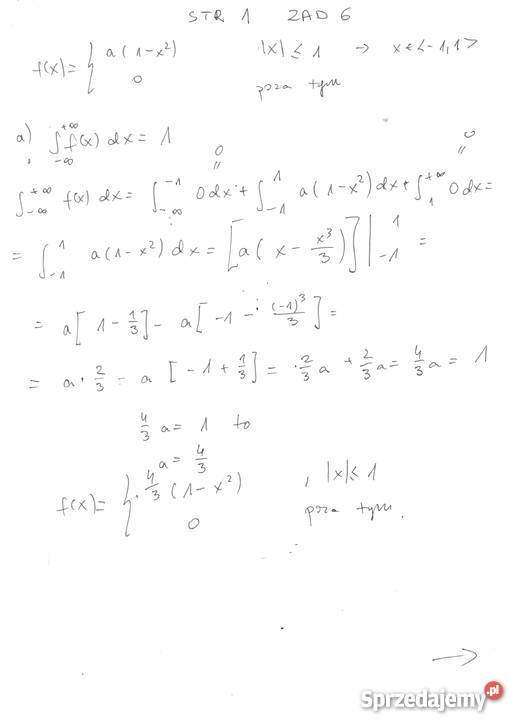 STR 1 ZAD 6
f(x) = { a(1-x²) |x| ≤ 1 → x ∈ <-1,1>
0 poza tym
a) ∫_{-∞}^{+∞} f(x) dx = 1
∫_{-∞}^{+∞} f(x) dx = ∫_{-∞}^{-1} 0dx + ∫_{-1}^{1} a(1-x²)dx + ∫_{1}^{+∞} 0dx =
0 = 0
= ∫_{-1}^{1} a(1-x²) dx = [a(x - x³/3)] |_{-1}^{1} =
= a[1 - 1/3] - a[-1 - (-1)³/3] =
= a · 2/3 - a [-1 + 1/3] = 2/3 a + 2/3 a = 4/3 a = 1
4/3 a = 1 to
a = 4/3
f(x) = { 4/3 (1-x²) , |x| ≤ 1
0 poza tym.
→
Sprzedajemy.pl